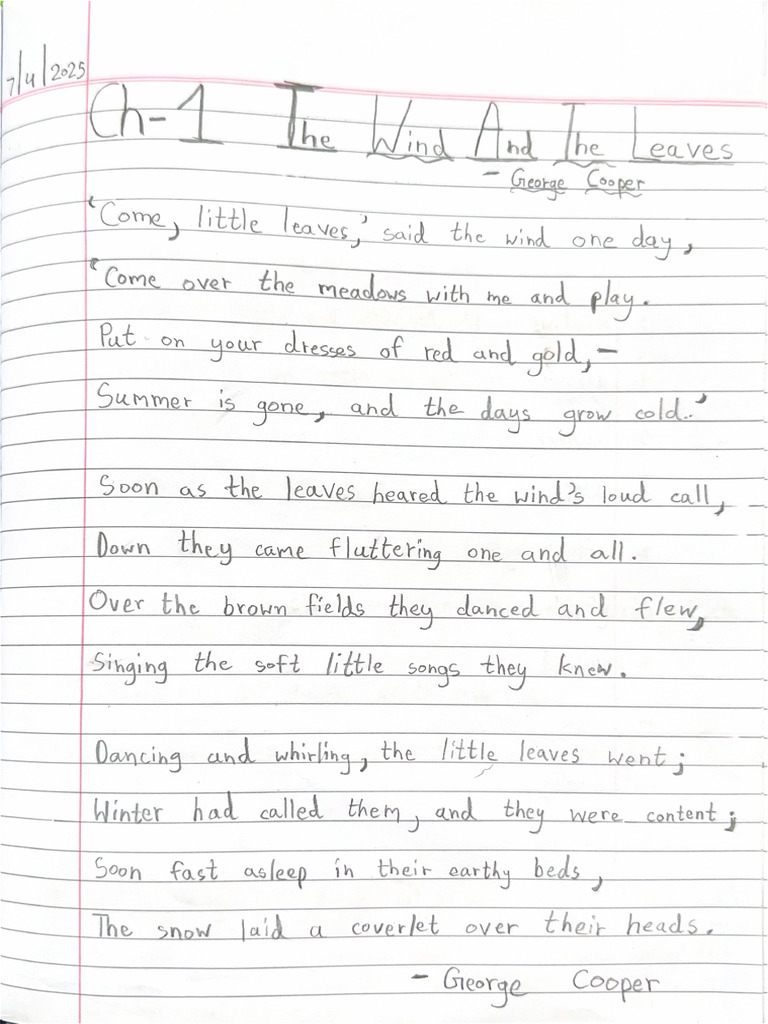 7/4/2025
Ch-1 The Wind And The Leaves
- George Cooper
'Come, little leaves,' said the wind one day,
'Come over the meadows with me and play.
Put on your dresses of red and gold,-
Summer is gone, and the days grow cold.'
Soon as the leaves heared the wind's loud call,
Down they came fluttering one and all.
Over the brown fields they danced and flew,
Singing the soft little songs they knew.
Dancing and whirling, the little leaves went;
Winter had called them, and they were content;
Soon fast asleep in their earthy beds,
The snow laid a coverlet over their heads.
- George Cooper